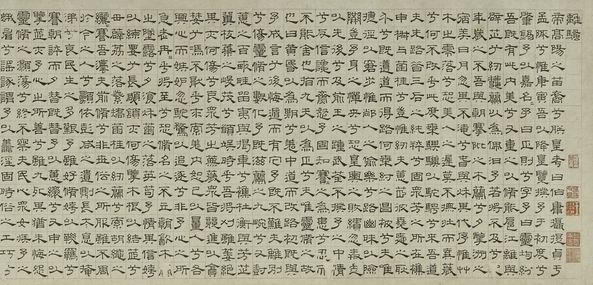 離騷
帝高陽之苗裔兮朕皇考曰伯庸攝提貞于
孟陬兮惟庚寅吾以降皇覽揆余于初度兮
肇錫余以嘉名名余曰正則兮字余曰靈均紛
吾既有此內美兮又重之以脩能扈江離與
辟芷兮紉秋蘭以為佩汩余若將不及兮恐
年歲之不吾與朝搴阰之木蘭兮夕攬洲之
宿莽日月忽其不淹兮春與秋其代序惟艸
木之零落兮恐美人之遲莫不撫壯而棄穢
兮何不改乎此度椉騏驥以馳騁兮來吾道
夫先路昔三后之純粹兮固眾芳之所在雜
申椒與菌桂兮豈維紉夫蕙茝彼堯舜之耿
介兮既遵道而得路何桀紂之昌披兮夫唯
捷徑以窘步惟黨人之偷樂兮路幽昧以險
隘豈余身之憚殃兮恐皇輿之敗績忽奔走
以先後兮及前王之踵武荃不揆余之中情
兮反信讒而齌怒余固知謇謇之為患兮忍
而不能舍也指九天以為正兮夫唯靈脩之故
也曰黃昏以為期兮羌中道而改路初既與
余成言兮後悔遁而有他余既不難夫離別
兮傷靈脩之數化余既滋蘭之九畹兮又樹
蕙之百畝畦留夷與揭車兮雜杜衡與芳芷
冀枝葉之峻茂兮願竢時乎吾將刈雖萎絕
其亦何傷兮哀眾芳之蕪穢眾皆競進以貪
婪兮憑不猒乎求索羌內恕己以量人兮各
興心而嫉妒忽馳騖以追逐兮非余心之所
急老冉冉其將至兮恐脩名之不立朝飲木蘭
之墜露兮夕餐秋菊之落英苟余情其信姱
以練要兮長顑頷亦何傷擥木根以結茝兮
貫薜荔之落蕊矯菌桂以紉蕙兮索胡繩之
纚纚謇吾法夫前脩兮非世俗之所服雖不周
於今之人兮願依彭咸之遺則長太息以掩
涕兮哀民生之多艱余雖好脩姱以鞿羈兮
謇朝誶而夕替既替余以蕙纕兮又申之以
攬茝亦余心之所善兮雖九死其猶未悔怨
靈脩之浩蕩兮終不察夫民心眾女嫉余之
蛾眉兮謠諑謂余以善淫固時俗之工巧兮